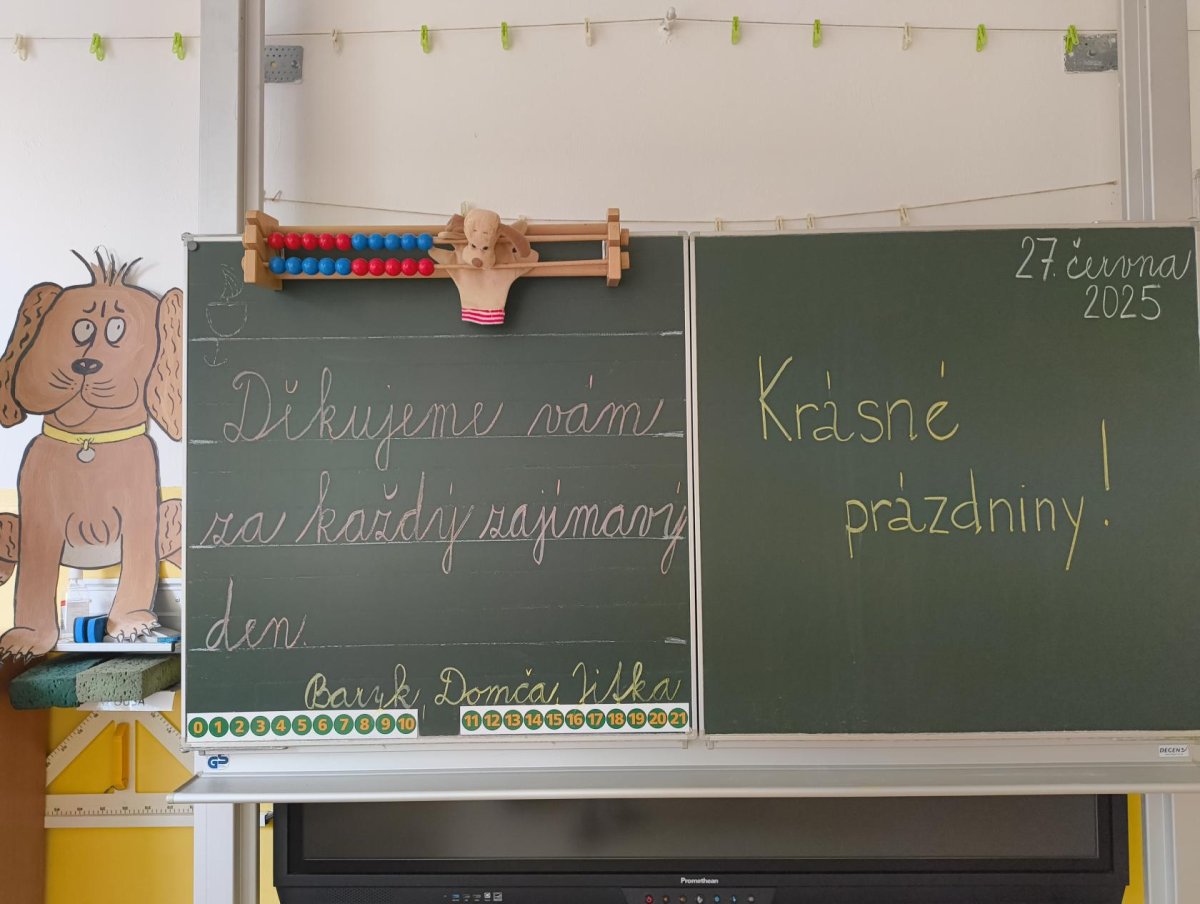 Děkujeme vám
za každý zajímavý
den.
Baryk, Domča, Jitka
0 1 2 3 4 5 6 7 8 9 10
11 12 13 14 15 16 17 18 19 20 21
27. června
2025
Krásné
prázdniny!
GS
DEGEN
Promethean